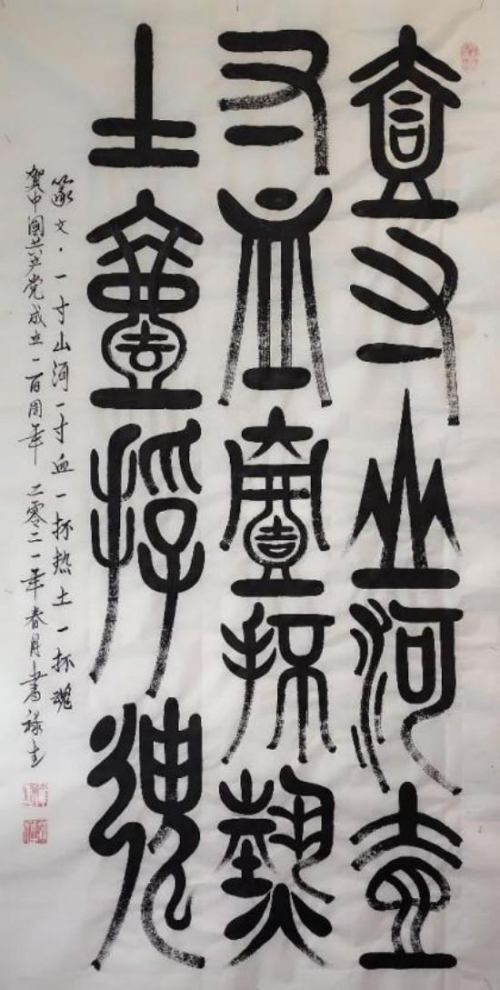 壹寸山河壹
寸血壹抔熱
土壹抔魂
篆文·一寸山河一寸血一抔热土一抔魂
贺中國共产党成立一百周年 二零二一年春月書